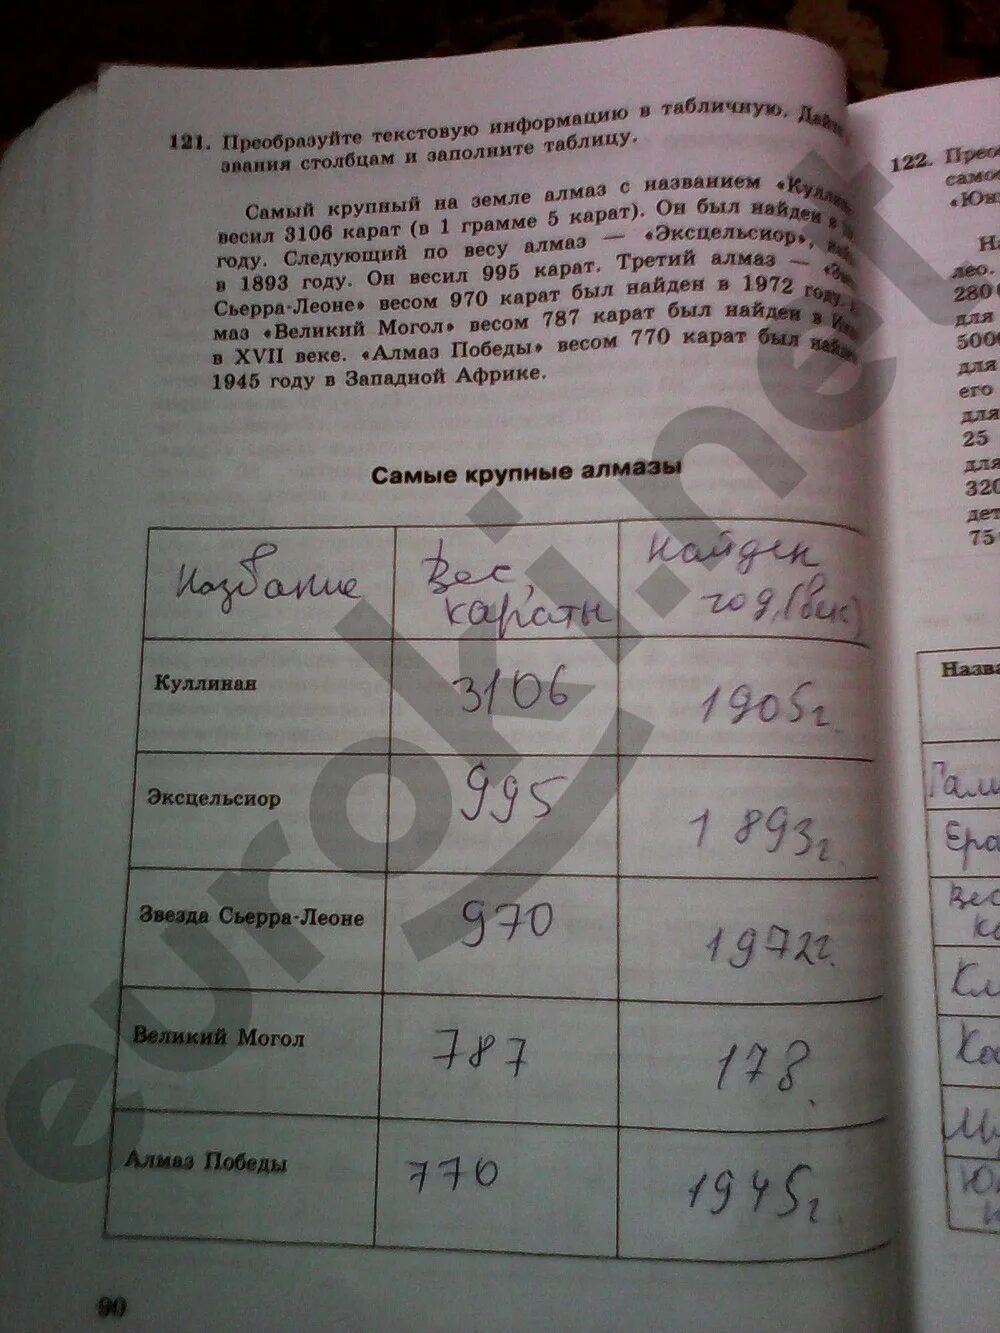 121. Преобразуйте текстовую информацию в табличную. Дайте
звания столбцам и заполните таблицу.
Самый крупный на земле алмаз с названием «Куллин
весил 3106 карат (в 1 грамме 5 карат). Он был найден в
году. Следующий по весу алмаз — «Эксцельсиор»,
в 1893 году. Он весил 995 карат. Третий алмаз —
Сьерра-Леоне» весом 970 карат был найден в 1972 году.
маз «Великий Могол» весом 787 карат был найден в
в XVII веке. «Алмаз Победы» весом 770 карат был
1945 году в Западной Африке.
Самые крупные алмазы
Название Вес, караты Найден год, (век)
Куллинан 3106 1905г.
Эксцельсиор 995 1893г.
Звезда Сьерра-Леоне 970 1972г.
Великий Могол 787 17в.
Алмаз Победы 770 1945г
90
122. Прео
само
«Юн
На
лео.
280
для
500
для
его
для
25
для
320
дет
75
Назва
Гали
Ера
Вес
Кл
euroki.net